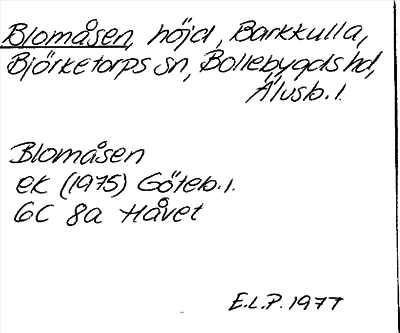 Blomåsen, höjd, Barkkulla,
Björketorps sn, Bollebygds hd,
Älvsb. l.
Blomåsen
ek (1975) Göteb. l.
6C 8a Håvet
E.L.P. 1977